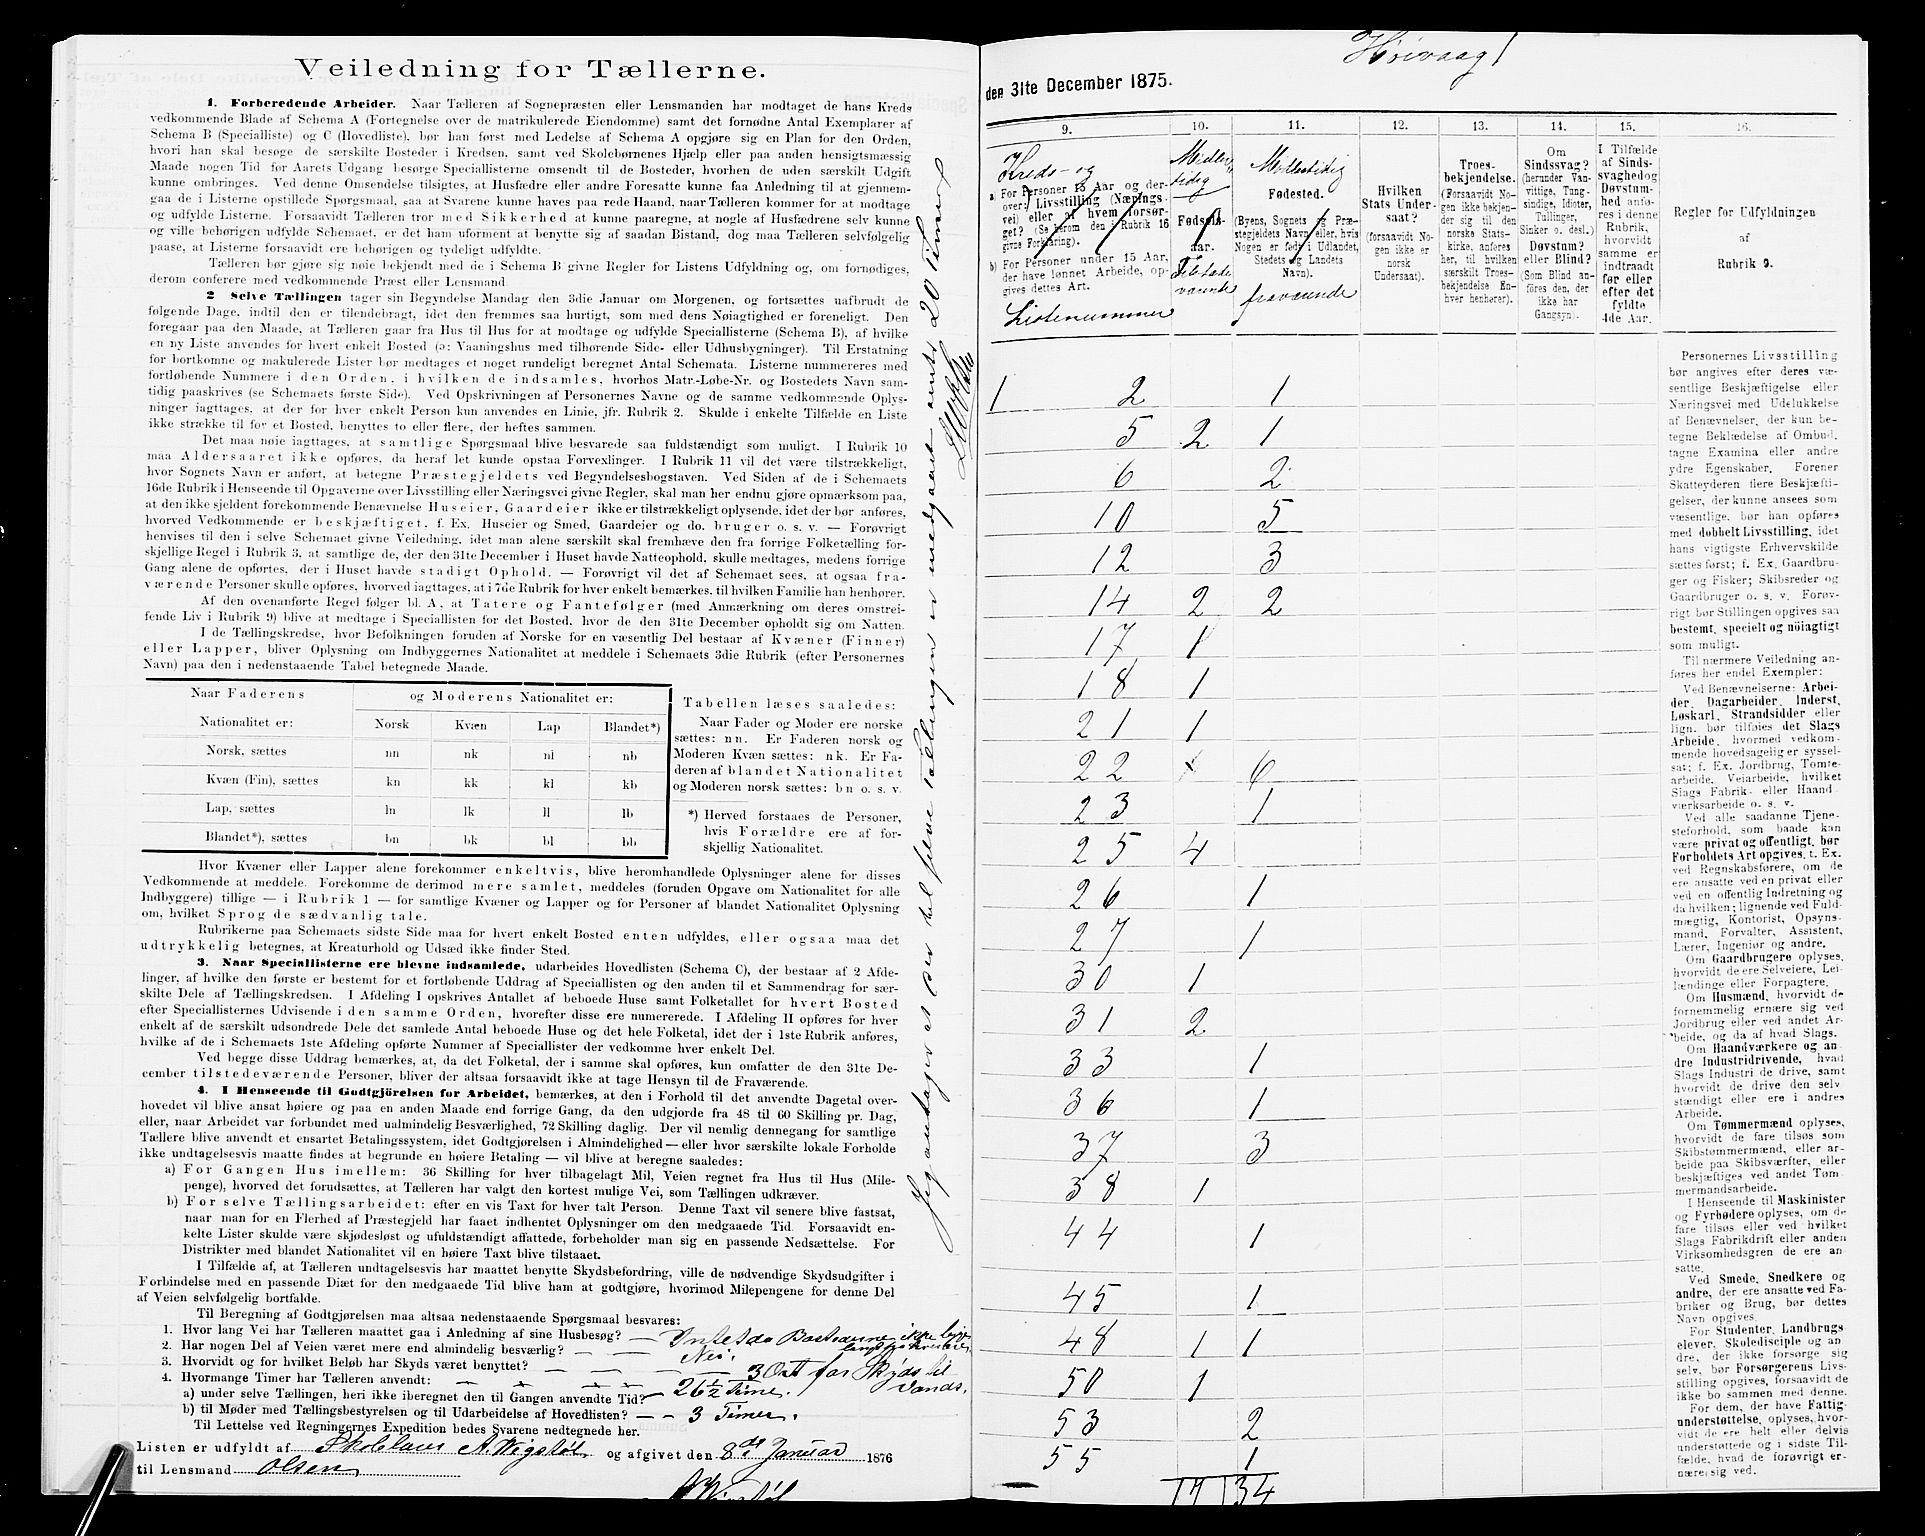 Veiledning for Tællerne.
1. Forberedende Arbeider. Naar Tælleren af Sognepræsten eller Lensmanden har modtaget de hans Kreds
vedkommende Blade af Schema A (Fortegnelse over de matrikulerede Eiendomme) samt det fornødne Antal Exemplarer af
Schema B (Specialliste) og C (Hovedliste), bør han først med Ledelse af Schema A opgjøre sig en Plan for den Orden,
hvori han skal besøge de særskilte Bosteder i Kredsen, samt ved Skolebørnenes Hjælp eller paa anden hensigtsmæssig
Maade nogen Tid før Aarets Udgang besørge Speciallisterne omsendt til de Bosteder, hvorhen de uden særskilt Udgift
kunne ombringes. Ved denne Omsendelse tilsigtes, at Husfædre eller andre Foresatte kunne faa Anledning til at gjennem-
gaa de i Listerne opstillede Spørgsmaal, saa at Svarene kunne haves paa rede Haand, naar Tælleren kommer for at modtage
og udfylde Listerne. Forsaavidt Tælleren tror med Sikkerhed at kunne paaregne, at nogle af Husfædrene selv kunne
og ville behørigen udfylde Schemaet, er det ham uforment at benytte sig af saadan Bistand, dog maa Tælleren selvfølgelig
paase, at Listerne forsaavidt ere behørigen og tydeligt udfyldte.
Tælleren bør gjøre sig nøie bekjendt med de i Schema B givne Regler for Listens Udfyldning og, om fornødiges,
derom conferere med vedkommende Præst eller Lensmand.
2 Selve Tællingen tager sin Begyndelse Mandag den 3die Januar om Morgenen, og fortsættes uafbrudt de
følgende Dage, indtil den er tilendebragt, idet den fremmes saa hurtigt, som med dens Nøiagtighed er foreneligt. Den
foregaar paa den Maade, at Tælleren gaar fra Hus til Hus for at modtage og udfylde Speciallisterne (Schema B), af hvilke
en ny Liste anvendes for hvert enkelt Bosted (ɔ: Vaaningshus med tilhørende Side- eller Udhusbygninger). Til Erstatning
for bortkomne og makulerede Lister bør medtages et noget rundeligt beregnet Antal Schemata. Listerne nummereres med
fortløbende Nummere i den Orden, i hvilken de indsamles, hvorhos Matr.-Løbe-Nr. og Bostedets Navn sam-
tidig paaskrives (se Schemaets første Side). Ved Opskrivningen af Personernes Navne og de samme vedkommende Oplys-
ninger iagttages, at der for hver enkelt Person kun anvendes en Linie, jfr. Rubrik 2. Skulde i enkelte Tilfælde en Liste
ikke strække til for et Bosted, benyttes to eller flere, der heftes sammen.
Det maa nøie iagttages, at samtlige Spørgsmaal blive besvarede saa fuldstændigt som muligt. I Rubrik 10
maa Aldersaaret ikke opføres, da heraf let kunde opstaa Forvexlinger. I Rubrik 11 vil det være tilstrækkeligt,
hvor Sognets Navn er anført, at betegne Præstegjeldets ved Begyndelsesbogstaven. Ved Siden af de i Schemaets
16de Rubrik i Henseende til Opgaverne over Livsstilling eller Næringsvei givne Regler, skal man her endnu gjøre opmærksom paa,
at den ikke sjeldent forekommende Benævnelse Huseier, Gaardeier ikke er tilstrækkeligt oplysende, idet der bør anføres,
hvorved Vedkommende er beskjæftiget, f. Ex. Huseier og Smed, Gaardeier og do. bruger o. s. v. — Forøvrigt
henvises til den i selve Schemaet givne Veiledning, idet man alene særskilt skal fremhæve den fra forrige Folketælling for-
skjellige Regel i Rubrik 3, at samtlige de, der den 31te December i Huset havde Natteophold, skulle medtages, medens forrige
Gang alene de opførtes, der i Huset havde stadigt Ophold. — Forøvrigt vil det af Schemaet sees, at ogsaa fra-
værende Personer skulle opføres, hvorved iagttages, at i 7de Rubrik for hver enkelt bemærkes, til hvilken Familie han henhører.
Af den ovenanførte Regel følger bl. A, at Tatere og Fantefølger (med Anmærkning om deres omstrei-
fende Liv i Rubrik 9) blive at medtage i Speciallisten for det Bosted, hvor de den 31te December opholdt sig om Natten.
I de Tællingskredse, hvor Befolkningen foruden af Norske for en væsentlig Del bestaar af Kvæner (Finner)
eller Lapper, bliver Oplysning om Indbyggernes Nationalitet at meddele i Schemaets 3die Rubrik (efter Personernes
Navn) paa den i nedenstaaende Tabel betegnede Maade.
Naar Faderens og Moderens Nationalitet er:
Nationalitet er: Norsk Kvæn Lap Blandet*)
Norsk, sættes nn nk nl nb
Kvæn (Fin), sættes kn kk kl kb
Lap, sættes ln lk ll lb
Blandet*), sættes bn bk bl bb
Tabellen læses saaledes:
Naar Fader og Moder ere norske
sættes: nn. Er Faderen norsk og
Moderen Kvæn sættes: nk. Er Fa-
deren af blandet Nationalitet
og Moderen norsk sættes: bn o. s. v.
*) Herved forstaaes de Personer,
hvis Forældre ere af for-
skjellig Nationalitet.
Hvor Kvæner eller Lapper alene forekommer enkeltvis, blive heromhandlede Oplysninger alene for disses
Vedkommende at meddele. Forekomme de derimod mere samlet, meddeles (foruden Opgave om Nationalitet for alle
Indbyggere) tillige — i Rubrik 1 — for samtlige Kvæner og Lapper og for Personer af blandet Nationalitet Oplysning
om, hvilket Sprog de sædvanlig tale.
Rubrikerne paa Schemaets sidste Side maa for hvert enkelt Bosted enten udfyldes, eller ogsaa maa det
udtrykkelig betegnes, at Kreaturhold og Udsæd ikke finder Sted.
3. Naar Speciallisterne ere blevne indsamlede, udarbeides Hovedlisten (Schema C), der bestaar af 2 Afde-
linger, af hvilke den første er bestemt for et fortløbende Uddrag af Speciallisten og den anden til et Sammendrag for sær-
skilte Dele af Tællingskredsen. I Afdeling I opskrives Antallet af beboede Huse samt Folketallet for hvert Bosted
efter Speciallisternes Udvisende i den samme Orden, hvorefter disse ere nummererede. I Afdeling II opføres for hver
enkelt af de særskilt udsondrede Dele det samlede Antal beboede Huse og det hele Folketal, idet der i 1ste Rubrik anføres,
hvilke af de i Schemaets 1ste Afdeling opførte Nummer af Speciallister der vedkomme hver enkelt Del.
Ved begge disse Uddrag bemærkes, at, da det Folketal, der i samme skal opføres, kun omfatter de den 31te De-
cember tilstedeværende Personer, bliver der altsaa forsaavidt ikke at tage Hensyn til de Fraværende.
4. I Henseende til Godtgjörelsen for Arbeidet, bemærkes, at den i Forhold til det anvendte Dagetal over-
hovedet vil blive ansat høiere og paa en anden Maade end forrige Gang, da den udgjorde fra 48 til 60 Skilling pr. Dag,
eller, naar Arbeidet var forbundet med ualmindelig Besværlighed, 72 Skilling daglig. Der vil nemlig dennegang for samtlige
Tællere blive anvendt et ensartet Betalingssystem, idet Godtgjørelsen i Almindelighed — eller hvor særskilte lokale Forholde
ikke undtagelsesvis maatte findes at begrunde en høiere Betaling — vil blive at beregne saaledes:
a) For Gangen Hus imellem: 36 Skilling for hver tilbagelagt Mil, Veien regnet fra Hus til Hus (Mile-
penge), hvorved det forudsættes, at Tælleren har valgt den kortest mulige Vei, som Tællingen udkræver.
b) For selve Tællingsarbeidet: efter en vis Taxt for hver talt Person. Denne Taxt vil senere blive fastsat,
naar man for en Flerhed af Præstegjeld har faaet indhentet Oplysninger om den medgaaede Tid. Forsaavidt en-
kelte Lister skulde være skjødesløst og ufuldstændigt affattede, forbeholder man sig en passende Nedsættelse. For
Distrikter med blandet Nationalitet vil en høiere Taxt blive tilstaaet.
I Tilfælde af, at Tælleren undtagelsesvis har maattet benytte Skydsbefordring, ville de nødvendige Skydsudgifter i
Forbindelse med en passende Diæt for den medgaaede Tid blive ham at godtgjøre, hvorimod Milepengene for denne Del
af Veien selvfølgelig bortfalde.
Til Beregning af Godtgjørelsen maa altsaa nedenstaaende Spørgsmaal besvares:
1. Hvor lang Vei har Tælleren maattet gaa i Anledning af sine Husbesøg? — Bostederne ikke
2. Har nogen Del af Veien været mere end almindelig besværlig? — Nei.
3. Hvorvidt og for hvilket Beløb har Skyds været benyttet? — 3 Ort for Skyds til
Vands.
4. Hvormange Timer har Tælleren anvendt:
a) under selve Tællingen, heri ikke iberegnet den til Gangen anvendte Tid? — 26½ Time.
b) til Møder med Tællingsbestyrelsen og til Udarbeidelse af Hovedlisten? — 3 Timer.
Til Lettelse ved Regningernes Expedition bedes Svarene nedtegnede her.
Listen er udfyldt af Skolelærer A. Wigstøl og afgivet den 8de Januar 1876
til Lensmand Olsen
A. Wigstøl
Jeg antager at der til selve Tællingen er medgaaet omtr. 20 Timer
Høivaag 1
den 31te December 1875.
9. 10. 11. 12. 13. 14. 15. 16.
Kreds- og
Listenummer
a) For Personer 15 Aar og der-
over: Livsstilling (Nærings-
vei) eller af hvem forsør-
get? (Se herom den i Rubrik 16
givne Forklaring).
b) For Personer under 15 Aar,
der have lønnet Arbeide, op-
gives dettes Art.
Midler-
tidig
Fødsels-
aar.
Tilstede-
værende
Midlertidig
Fødested.
(Byens, Sognets og Præ-
stegjeldets Navn eller, hvis
Nogen er født i Udlandet,
Stedets og Landets
Navn).
fraværende
Hvilken
Stats Under-
saat?
(forsaavidt No-
gen ikke er
norsk
Undersaat).
Troes-
bekjendelse.
(Forsaavidt No-
gen ikke bekjen-
der sig til den
norske Stats-
kirke, anføres
her, til hvilken
særskilt Troes-
bekjendelse En-
hver henhører).
Om
Sindssvag?
(herunder Van-
vittige, Tung-
sindige, Idioter,
Tullinger,
Sinker o. desl.)
Døvstum?
eller Blind?
(Som Blind an-
føres den, der
ikke har
Gangsyn).
I Tilfælde
af Sinds-
svaghed og
Døvstum-
hed anfø-
res i denne
Rubrik,
hvorvidt
samme er
indtraadt
før eller
efter det
fyldte
4de Aar.
Regler for Udfyldningen
af
Rubrik 9.
1 2 1
5 2 1
6 2
10 5
12 3
14 2 2
17 1
18 1
21 1
22 x 6
23 1
25 4
26 1
27 1
30 1
31 2
33 1
36 1
37 3
38 1
44 1
45 1
48 1 1
50 1
53 2
55 1
17 34
Personernes Livsstilling
bør angives efter deres væ-
sentlige Beskjæftigelse eller
Næringsvei med Udelukkelse
af Benævnelser, der kun be-
tegne Beklædelse af Ombud,
tagne Examina eller andre
ydre Egenskaber. Forener
Skatteyderen flere Beskjæfti-
gelser, der kunne ansees som
væsentlige, bør han opføres
med dobbelt Livsstilling, idet
hans vigtigste Erhvervskilde
sættes først; f. Ex. Gaardbru-
ger og Fisker; Skibsreder og
Gaardbruger o. s. v. Forøv-
rigt bør Stillingen opgives saa
bestemt, specielt og nöiagtigt
som muligt.
Til nærmere Veiledning an-
føres her endel Exempler:
Ved Benævnelserne: Arbei-
der, Dagarbeider, Inderst,
Løskarl, Strandsidder eller
lign. bør tilføies det Slags
Arbeide, hvormed vedkom-
mende hovedsagelig er syssel-
sat; f. Ex. Jordbrug, Tomte-
arbeide, Veiarbeide, hvilket
Slags Fabrik- eller Haand-
værksarbeide o. s. v.
Ved alle saadanne Tjene-
steforhold, som baade kan
være privat og offentligt, bør
Forholdets Art opgives, t. Ex.
ved Regnskabsførere, om de
ere ansatte ved en privat eller
ved en offentlig Indretning og
da hvilken; lignende ved Fuld-
mægtig, Kontorist, Opsyns-
mand, Forvalter, Assistent,
Lærer, Ingeniør og andre.
Om Gaardbrugere oplyses,
hvorvidt de ere Selveiere, Lei-
lændinge eller Forpagtere.
Om Husmænd, hvorvidt de
fornemmelig ernære sig ved
Jordbrug eller ved andet Ar-
beide, og da af hvad Slags.
Om Haandværkere og an-
dre Industridrivende, hvad
Slags Industri de drive, samt
hvorvidt de drive den selv-
stændigt eller ere i andres
Arbeide.
Om Tømmermænd oplyses,
hvorvidt de fare tilsøs som
Skibstømmermænd, eller ar-
beide paa Skibsværfter, eller
beskjæftiges ved andet Tøm-
mermandsarbeide.
I Henseende til Maskinister
og Fyrbødere oplyses, om de
fare tilsøs eller ved hvilket
Slags Fabrikdrift eller anden
Virksomhedsgren de ere an-
satte.
Ved Smede, Snedkere og
andre, der ere ansatte ved Fa-
briker og Brug, bør dettes
Navn opgives.
For Studenter, Landbrugs-
elever, Skoledisciple og an-
dre, der ikke forsørge sig
selv, bør Forsørgerens Livs-
stilling opgives, forsaavidt de
ikke bo sammen med denne.
For dem, der have Fattig-
understøttelse, oplyses, hvor-
vidt de ere helt eller delvis
understøttede og i sidste Til-
fælde, hvad de forøvrigt er-
nære sig ved.